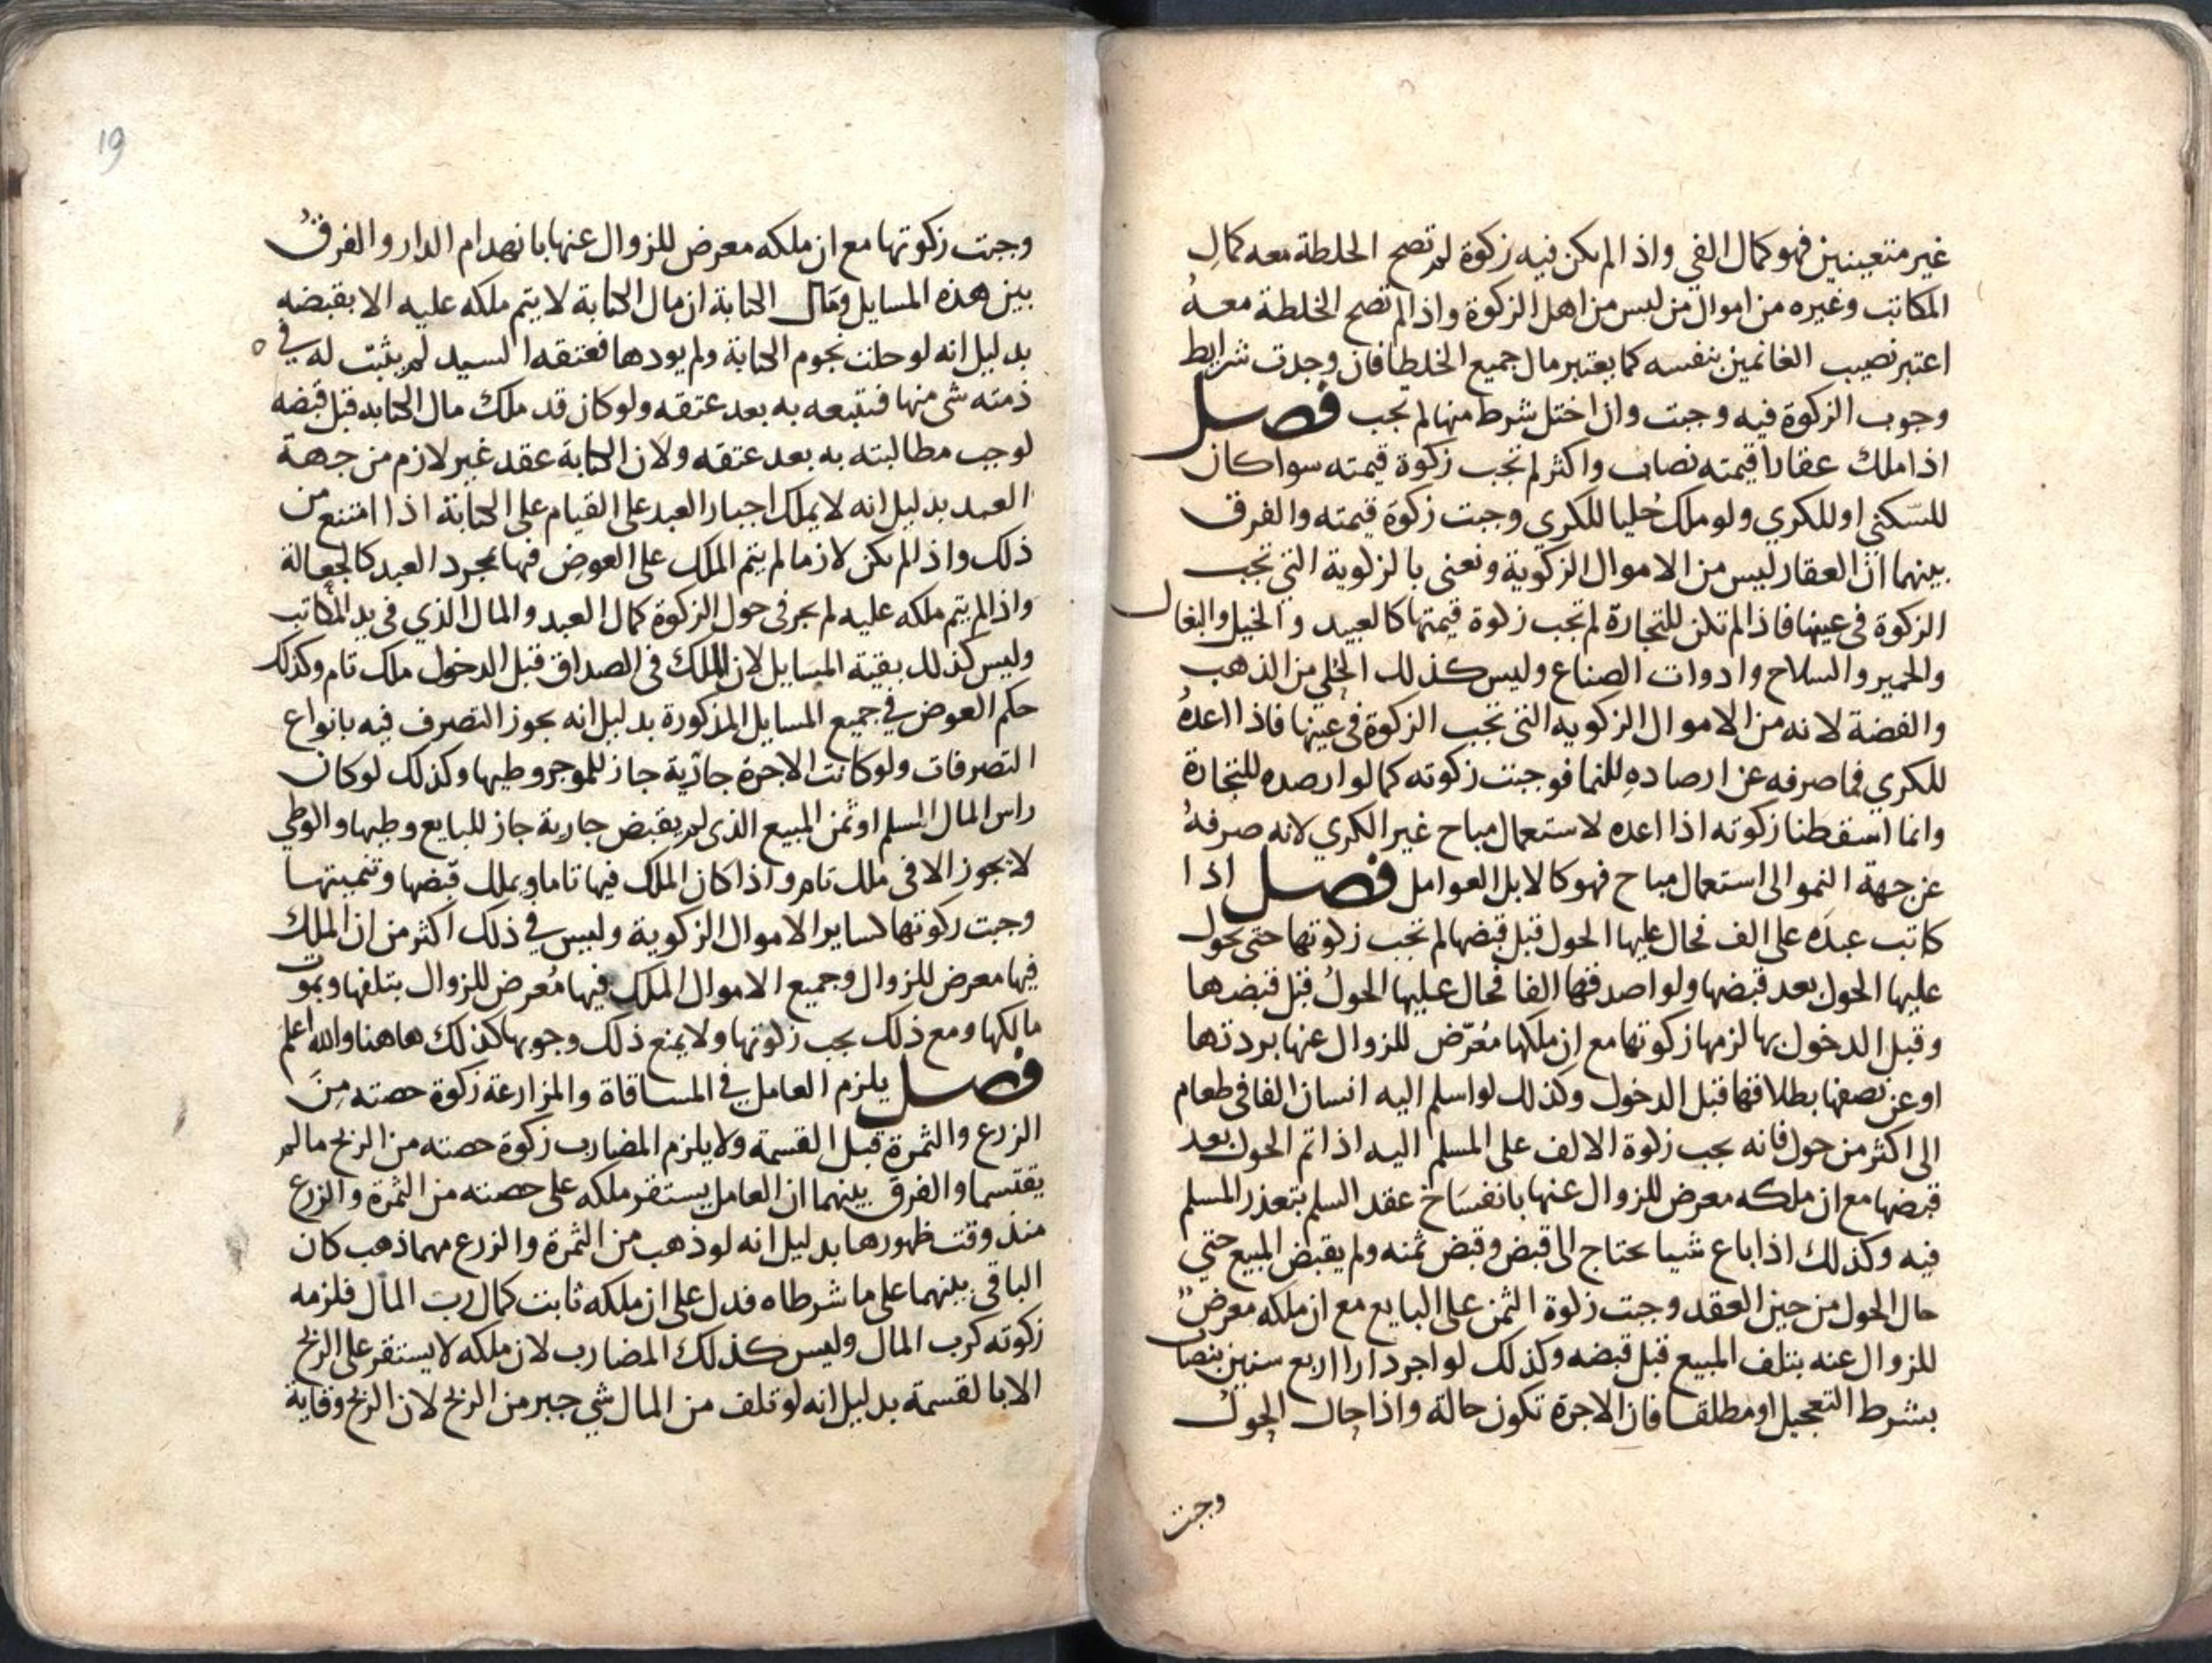 غير متعينين فهو كمال الفي واذا لم يكن فيه زكوة لم تصح الخلطة معه كمالِ
المكاتب وغيره من اموال من ليس من اهل الزكوة واذا لم تصح الخلطة معهُ
اعتبر نصيب الغانمين بنفسه كما يعتبر مال جميع الخلطا فان وجدت شرايط
وجوب الزكوة فيه وجبت وان اختل شرط منها لم تجب فصل
اذا ملك عقارا قيمته نصاب واكثر لم تجب زكوة قيمته سوا كان
للسّكني او للكري ولو ملك حُليا للكري وجبت زكوة قيمته والفرق
بينهما انّ العقار ليس من الاموال الزكوية ونعني بالزكوية التي تجب
الزكوة في عينها فاذا لم تكن للتجارة لم تجب زكوة قيمتها كالعبيد والخيل والبغال
والحمير والسلاح وادوات الصناع وليس كذلك الحلي من الذهب
والفضة لانه من الاموال الزكويه التي تجب الزكوة في عينها فاذا اعدهُ
للكري فما صرفه عن ارصادهِ للنما فوجبت زكوته كما لو ارصده للتجارة
وانما اسقطنا زكوته اذا اعده لاستعمال مباح غير الكري لانه صرفهُ
عن جهة النمو الى استعمال مباح فهو كالابل العوامل فصل اذا
كاتب عبدَه على الف فحال عليها الحول قبل قبضها لم تجب زكوتها حتى يحول
عليها الحول بعد قبضها ولو اصدقها الفا فحال عليها الحولُ قبل قبضها
وقبل الدخول بها لزمها زكوتها مع ان ملكها مُعَرّض للزوال عنها بردتها
او عن نصفها بطلاقها قبل الدخول وكذلك لو اسلم اليه انسان الفا في طعام
الى اكثر من حول فانه يجب زكوة الالف على المسلم اليه اذا تم الحول بعد
قبضها مع ان ملكه معرض للزوال عنها بانفسَاخ عقد السلم بتعذر المسلم
فيه وكذلك اذا باع شيا يحتاج الى قبض وقبض ثمنه ولم يقبض المبيع حتي
حال الحول من حين العقد وجبت زكوة الثمن على البايع مع ان ملكه معرضٌ
للزوال عنه بتلف المبيع قبل قبضه وكذلك لو اجر دارا اربع سنين بنصاب
بشرط التعجيل او مطلقا فان الاجرة تكون حالة واذا حال الحول
وجبت
19
وجبت زكوتها مع ان ملكه معرض للزوال عنها بانهدام الدار والفرقُ
بين هذه المسايل ومال الكتابة ان مال الكتابة لا يتم ملكه عليه الا بقبضه
بدليل انه لو حلت نجوم الكتابة ولم يودها فعتقه السيد لم يثبت له في
ذمته شي منها فيتبعه به بعد عتقه ولو كان قد ملك مال الكتابه قبل قبضه
لوجب مطالبته به بعد عتقه ولان الكتابة عقد غير لازم من جهة
العبد بدليل انه لا يملك اجبار العبد على القيام على الكتابة اذا امتنع من
ذلك واذا لم يكن لازما لم يتم الملك على العوض فيها بمجرد العبد كالجعالة
واذا لم يتم ملكه عليه لم يجر في حول الزكوة كمال العبد والمال الذي في يد المكاتب
وليس كذلك بقية المسَايل لان الملك في الصداق قبل الدخول ملك تام وكذلك
حكم العوض في جميع المسايل المذكورة بدليل انه يجوز التصرف فيه بانواع
التصرفات ولو كانت الاجرة جارية جاز للموجر وطيها وكذلك لو كان
راس المال المسلم او ثمن المبيع الذي لم يقبض جارية جاز للبايع وطيها والوطي
لا يجوز الا في ملك تام واذا كان الملك فيها تاما ويملك قبضها وتنميتها
وجبت زكوتها كساير الاموال الزكوية وليس في ذلك اكثر من ان الملك
فيها معرض للزوال وجميع الاموال الملك فيها مُعرض للزوال بتلفها وبموت
مالكها ومع ذلك يجب زكوتها ولا يمنع ذلك وجوبها كذلك هاهنا والله اعلم
فصل يلزم العامل في المساقاة والمزارعة زكوة حصته مِنَ
الزرع والثمرة قبل القسمة ولا يلزم المضارب زكوة حصته من الربح ما لم
يقتسما والفرق بينهما ان العامل يستقر ملكه على حصته من الثمرة والزرع
منذ وقت ظهورها بدليل انه لو ذهب من الثمرة والزرع مهما ذهب كان
الباقي بينهما على ما شرطاه فدل على ان ملكه ثابت كمال رب المال فلزمه
زكوته كرب المال وليس كذلك المضارب لان ملكه لا يستقر على الربح
الا بالقسمة بدليل انه لو تلف من المال شي جبر من الربح لان الربح وقاية